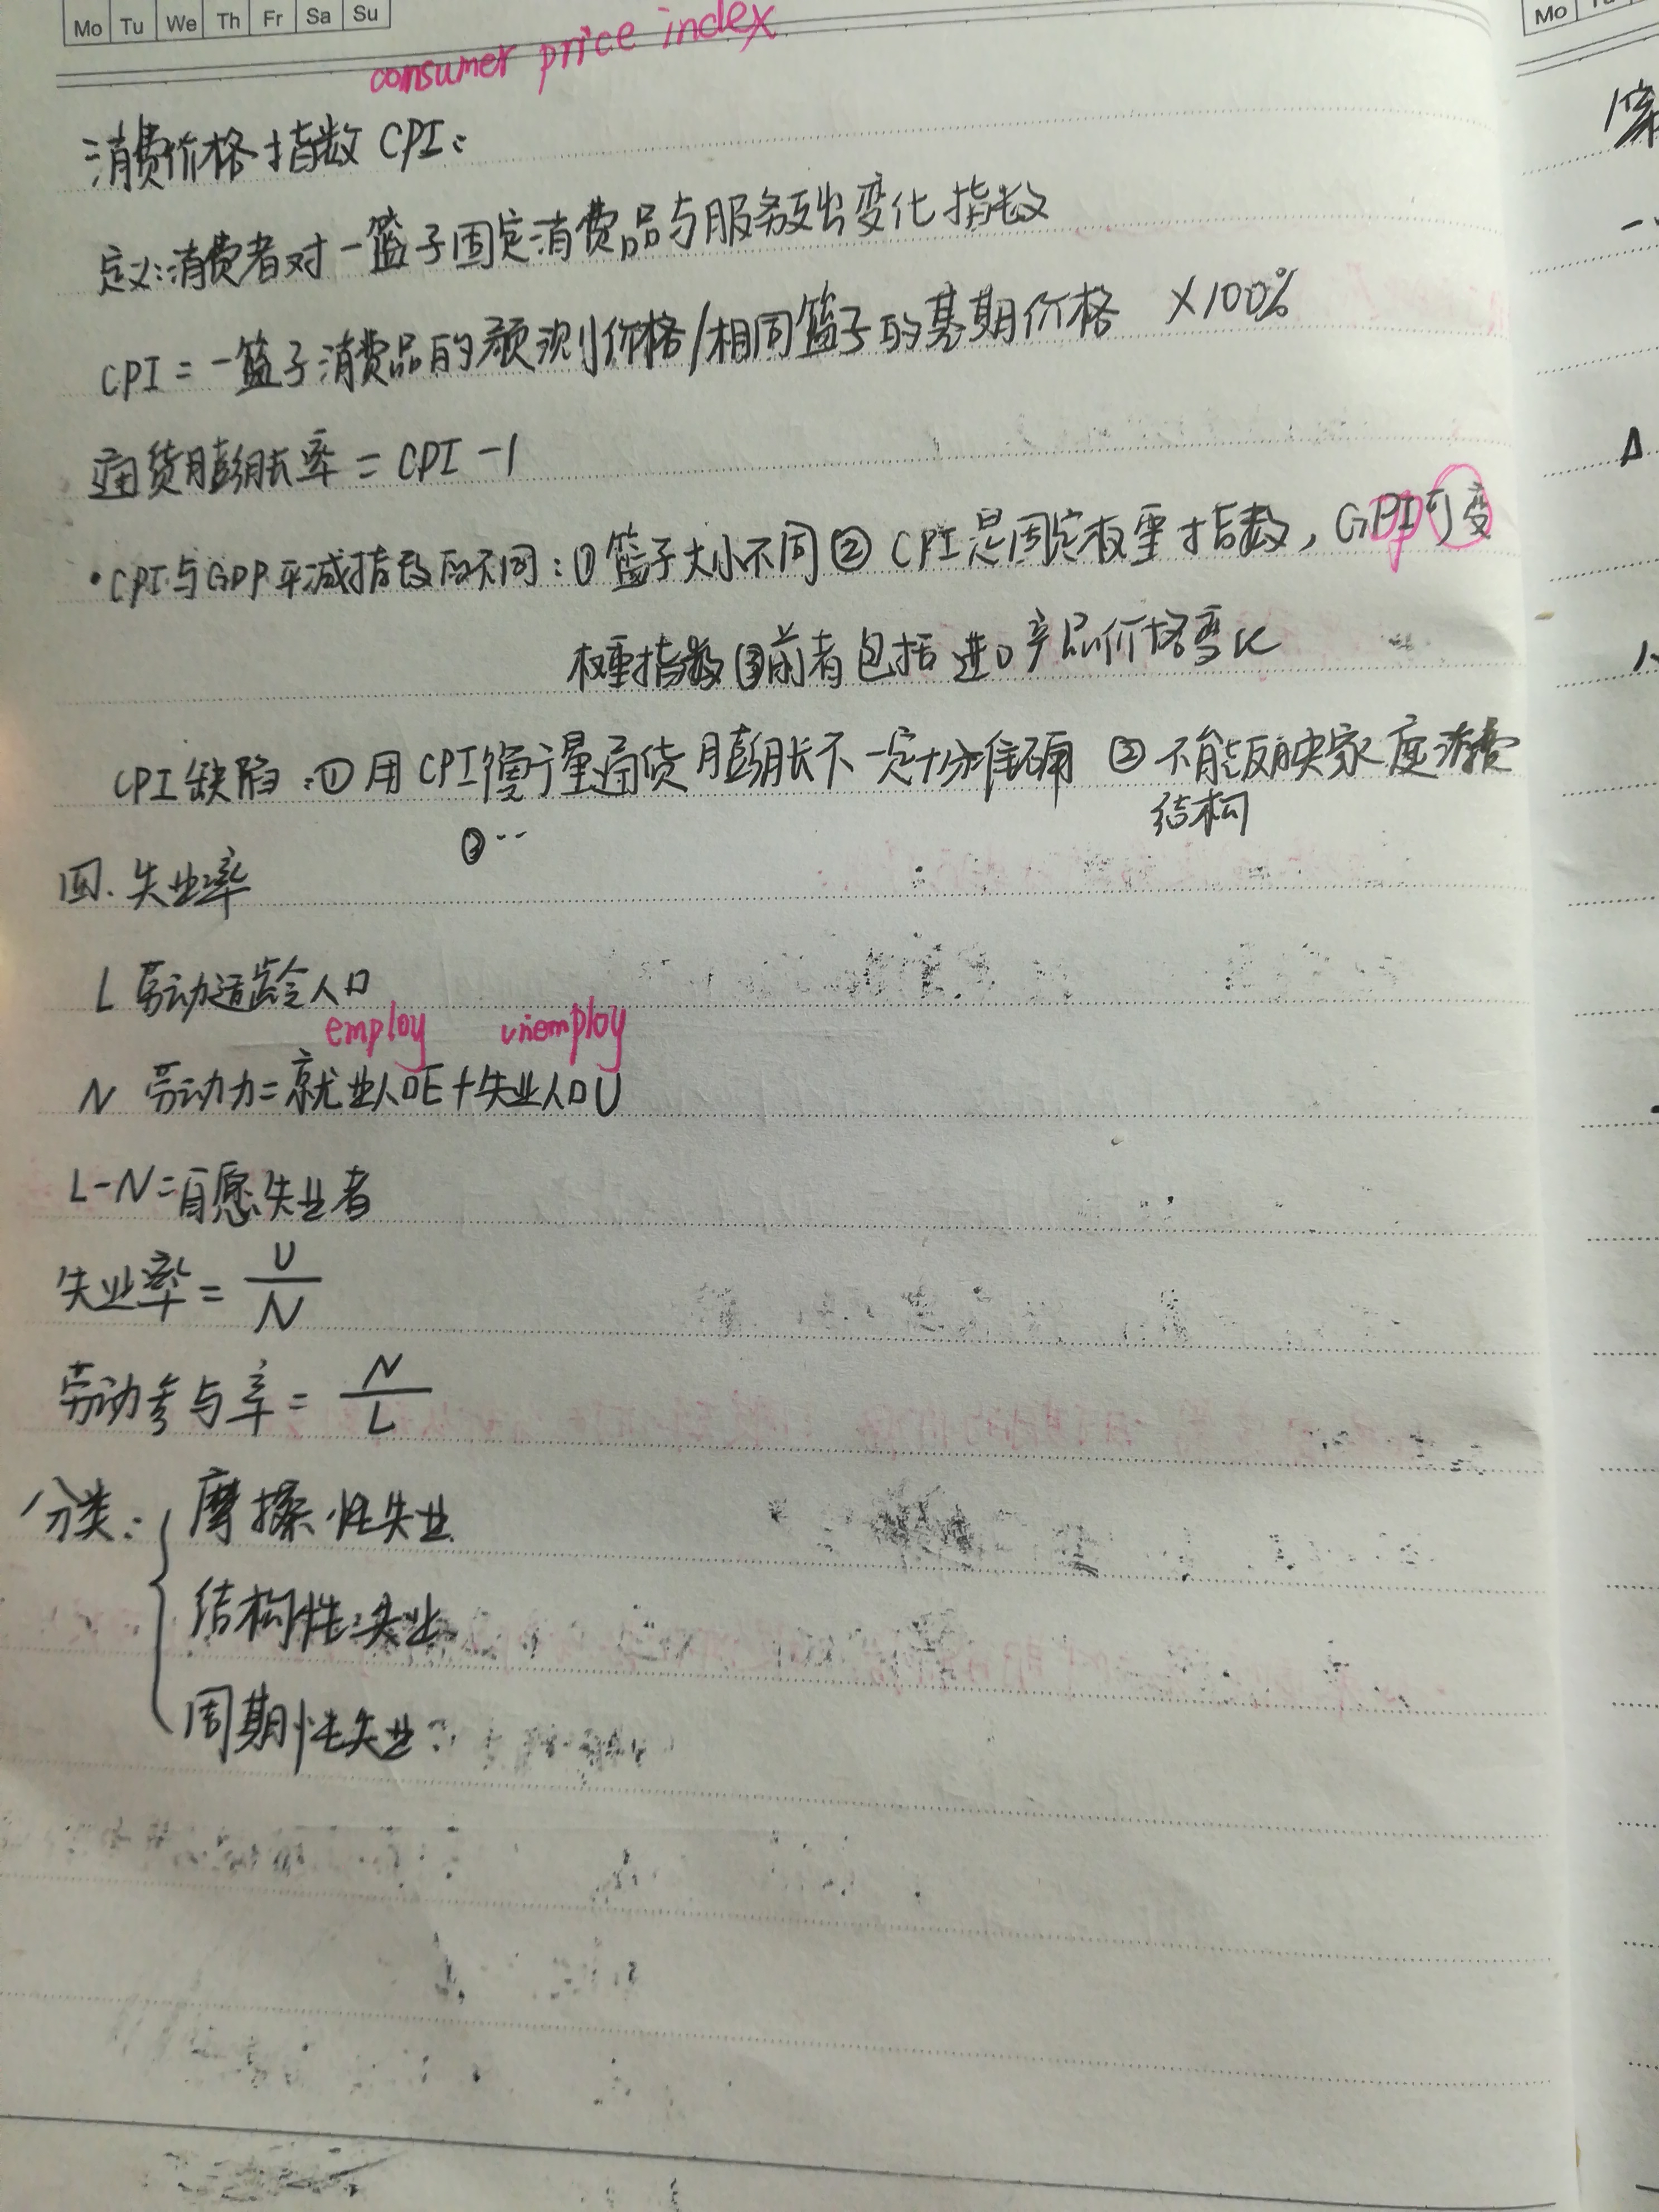 Mo Tu We Th Fr Sa Su
Mo
consumer price index
消费价格指数 CPI:
定义:消费者对一篮子固定消费品与服务支出变化指数
CPI = 一篮子消费品的预测价格/相同篮子的基期价格 ×100%
通货膨胀率 = CPI - 1
·CPI与GDP平减指数的不同:① 篮子大小不同 ② CPI是固定权重指数,GDP可变
权重指数 ③前者包括进口产品价格变化
CPI缺陷:① 用CPI衡量通货膨胀不一定十分准确 ② 不能反映家庭消费
结构
③ ··
四.失业率
L 劳动适龄人口
employ unemploy
N 劳动力=就业人口E+失业人口U
L-N=自愿失业者
失业率 = U/N
劳动参与率 = N/L
分类: 摩擦性失业
结构性失业
周期性失业: